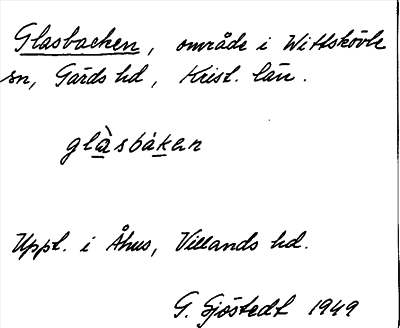 Glasbacken, område i Wittskövle
sn, Gärds hd, Krist. län.
glàsbákan
Uppt. i Åhus, Villands hd.
G. Sjöstedt 1949